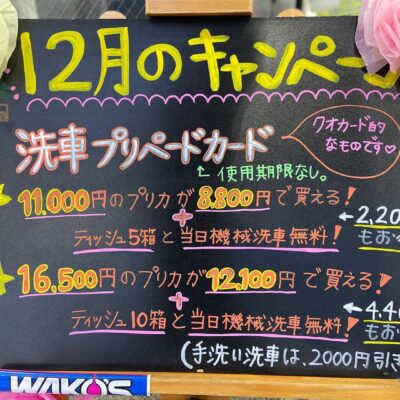 12月のキャンペー
洗車プリペードカード
クオカード的
なものです♡
←使用期限なし。
11.000円のプリカが8.800円で買える!
+
←2,20
ティッシュ5箱と当日機械洗車無料!
もお
16.500円のプリカが12.100円で買える!
+
←4.4
ティッシュ10箱と当日機械洗車無料!
もお
(手洗い洗車は、2000円引き
WAKO'S